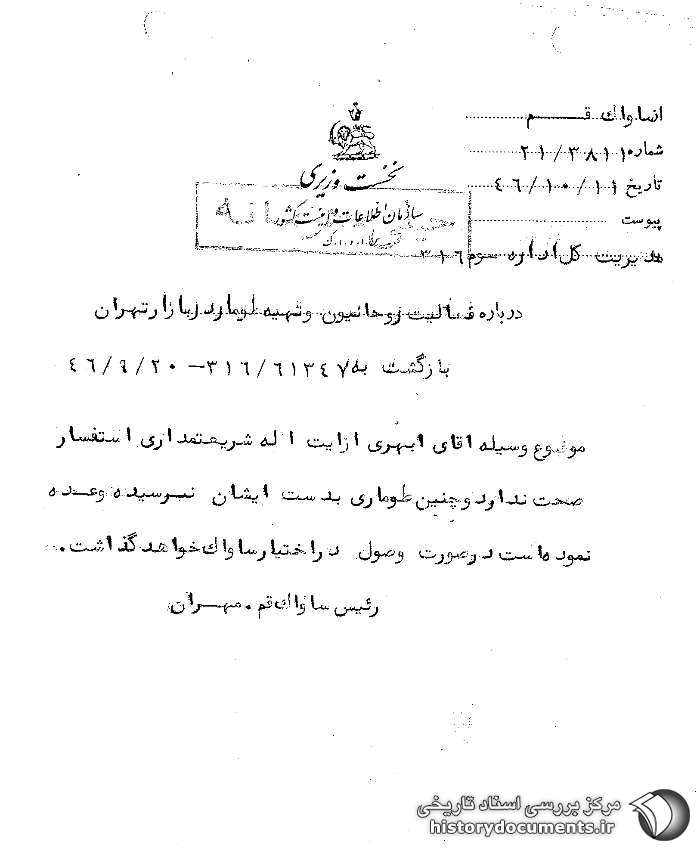 از ساواک قم
شماره ۲۱/۳۸۱۱۰
تاریخ ۴۶/۱۰/۱۱
پیوست
نخست وزیری
سازمان اطلاعات و امنیت کشور
س.ا.و.ا.ک
خیلی محرمانه
مدیریت کل اداره سوم ۳۱۶
درباره فعالیت روحانیون وتهیه طومار در بازار تهران
بازگشت به ۳۱۶/۶۱۳۴۷ – ۴۶/۹/۲۰
موضوع وسیله اقای ابهری از ایت اله شریعتمداری استفسار
صحت ندارد وچنین طوماری بدست ایشان نرسیده وعده
نموده است در صورت وصول در اختیار ساواک خواهد گذاشت.
رئیس ساواک قم . مهران
مرکز بررسی اسناد تاریخی
historydocuments.ir